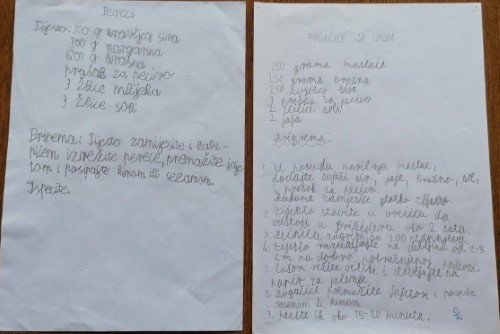 Pereci
Tijesto: 300 g kravljeg sira
300 g margarina
600 g brašna
prašak za pecivo
3 žlice mlijeka
3 žlice soli
Priprema: Tijesto zamijesite i kalu-
pićem izrežite perece, premažite jaje
tom i pospite kimom ili sezamom.
Ispecite.
POGAČICE SA SIROM
250 grama maslaca
250 grama brašna
250 svježeg sira
1 prašak za pecivo
žličice soli
jaja
Priprema
1. U posudu narežite maslac,
dodajte svježi sir, jaje, brašno, sol,
i prašak za pecivo.
Rukama zamijesite glatko tijesto.
2. Tijesto stavite u vrećicu da
odstoji u frižideru oko 2 sata.
3. Pećnicu zagrijte na 200 stupnjeva
4. Tijesto razvaljajte na debljinu od 2-3
cm na dobro pobrašnjenoj
5. Zatim režite oblike i stavljajte na
papir za pečenje.
6. Pogačice premažite jajetom i pospite
sezamom ili kimom.
7. Pecite ih oko 15-20 minuta.